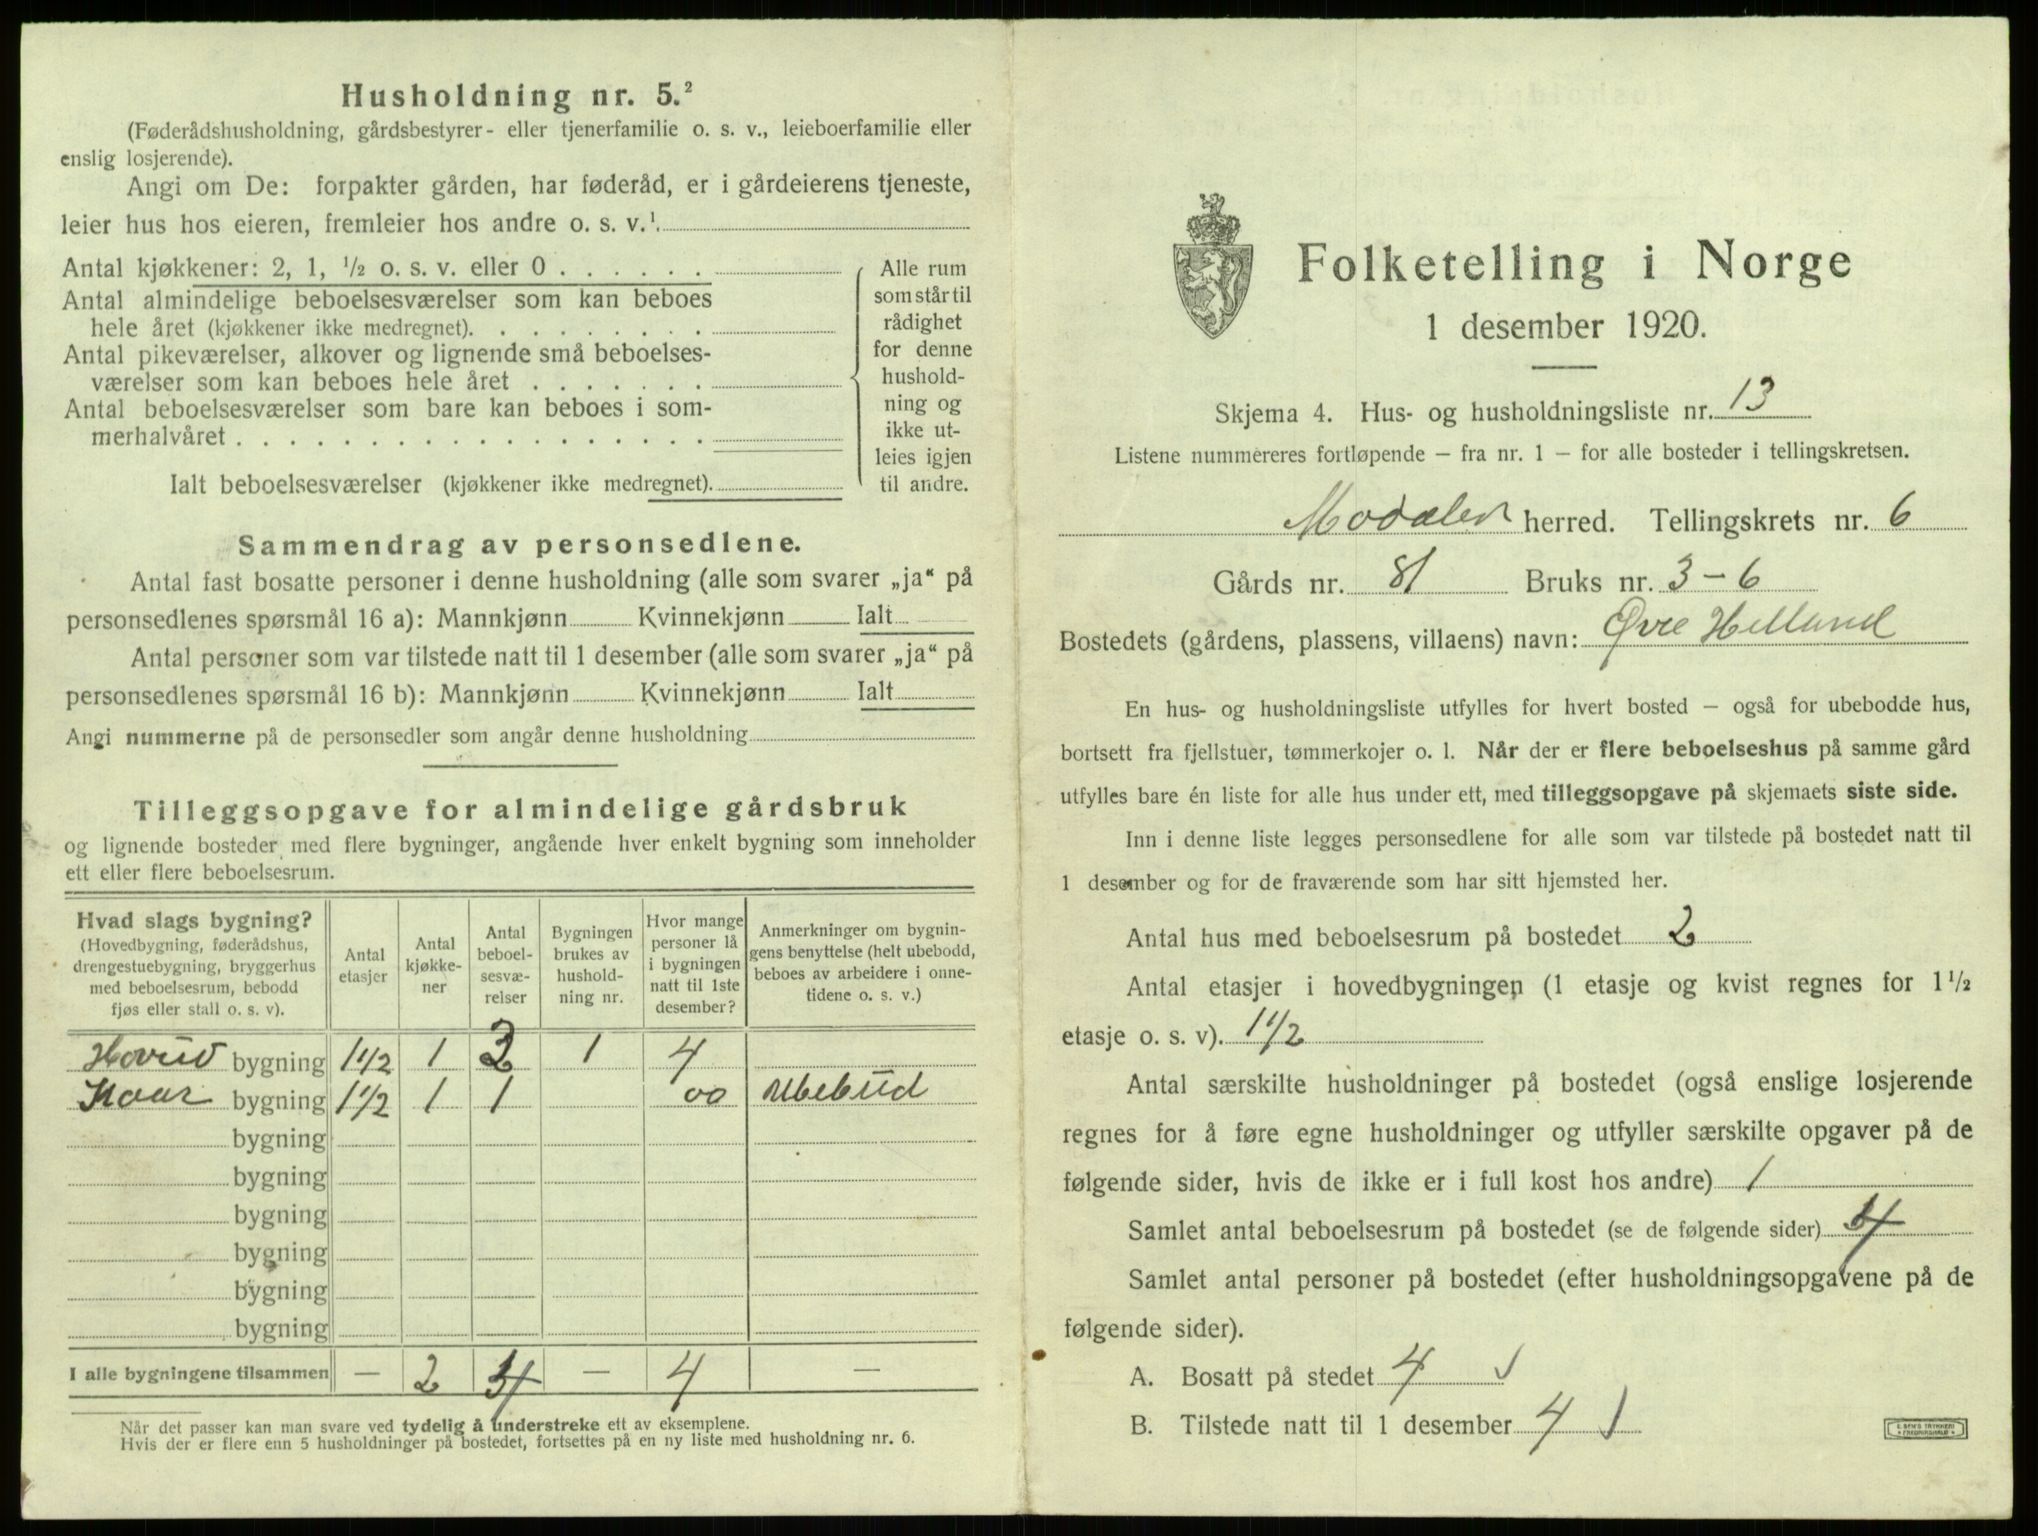 Husholdning nr. 5.²
(Føderådshusholdning, gårdsbestyrer- eller tjenerfamilie o. s. v., leieboerfamilie eller
enslig losjerende).
Angi om De: forpakter gården, har føderåd, er i gårdeierens tjeneste,
leier hus hos eieren, fremleier hos andre o. s. v.¹.
Antal kjøkkener: 2, 1, ½ o. s. v. eller 0 . . . . . .
Antal almindelige beboelsesværelser som kan beboes
hele året (kjøkkener ikke medregnet). . . . . . . . .
Antal pikeværelser, alkover og lignende små beboelses-
værelser som kan beboes hele året . . . . . . .
Antal beboelsesværelser som bare kan beboes i som-
merhalvåret . . . . . . . . . . . . . . . . . .
Ialt beboelsesværelser (kjøkkener ikke medregnet).
Alle rum
som står til
rådighet
for denne
hushold-
ning og
ikke ut-
leies igjen
til andre.
Sammendrag av personsedlene.
Antal fast bosatte personer i denne husholdning (alle som svarer „ja“ på
personsedlenes spørsmål 16 a): Mannkjønn Kvinnekjønn Ialt
Antal personer som var tilstede natt til 1 desember (alle som svarer „ja“ på
personsedlenes spørsmål 16 b): Mannkjønn Kvinnekjønn Ialt
Angi nummerne på de personsedler som angår denne husholdning
Tilleggsopgave for almindelige gårdsbruk
og lignende bosteder med flere bygninger, angående hver enkelt bygning som inneholder
ett eller flere beboelsesrum.
Hvad slags bygning?
(Hovedbygning, føderådshus,
drengestuebygning, bryggerhus
med beboelsesrum, bebodd
fjøs eller stall o. s. v).
Antal
etasjer
Antal
kjøkke-
ner
Antal
beboel-
sesvæ-
relser
Bygningen
brukes av
hushold-
ning nr.
Hvor mange
personer lå
i bygningen
natt til 1ste
desember?
Anmerkninger om bygnin-
gens benyttelse (helt ubebodd,
beboes av arbeidere i onne-
tidene o. s. v.)
Hovud bygning 1½ 1 3 1 4
Kaar bygning 1½ 1 1 00 Ubebud
bygning
bygning
bygning
bygning
bygning
bygning
I alle bygningene tilsammen — 2 4 — 4 —
Når det passer kan man svare ved tydelig å understreke ett av eksemplene.
Hvis der er flere enn 5 husholdninger på bostedet, fortsettes på en ny liste med husholdning nr. 6.
Folketelling i Norge
1 desember 1920.
Skjema 4. Hus- og husholdningsliste nr. 13
Listene nummereres fortløpende — fra nr. 1 — for alle bosteder i tellingskretsen.
Modalen herred. Tellingskrets nr. 6
Gårds nr. 81 Bruks nr. 3-6
Bostedets (gårdens, plassens, villaens) navn: Øvre Helland
En hus- og husholdningsliste utfylles for hvert bosted — også for ubebodde hus,
bortsett fra fjellstuer, tømmerkojer o. l. Når der er flere beboelseshus på samme gård
utfylles bare én liste for alle hus under ett, med tilleggsopgave på skjemaets siste side.
Inn i denne liste legges personsedlene for alle som var tilstede på bostedet natt til
1 desember og for de fraværende som har sitt hjemsted her.
Antal hus med beboelsesrum på bostedet 2
Antal etasjer i hovedbygningen (1 etasje og kvist regnes for 1½
etasje o. s. v). 1½
Antal særskilte husholdninger på bostedet (også enslige losjerende
regnes for å føre egne husholdninger og utfyller særskilte opgaver på de
følgende sider, hvis de ikke er i full kost hos andre) 1
Samlet antal beboelsesrum på bostedet (se de følgende sider) 4
Samlet antal personer på bostedet (efter husholdningsopgavene på de
følgende sider).
A. Bosatt på stedet 4
B. Tilstede natt til 1 desember 4